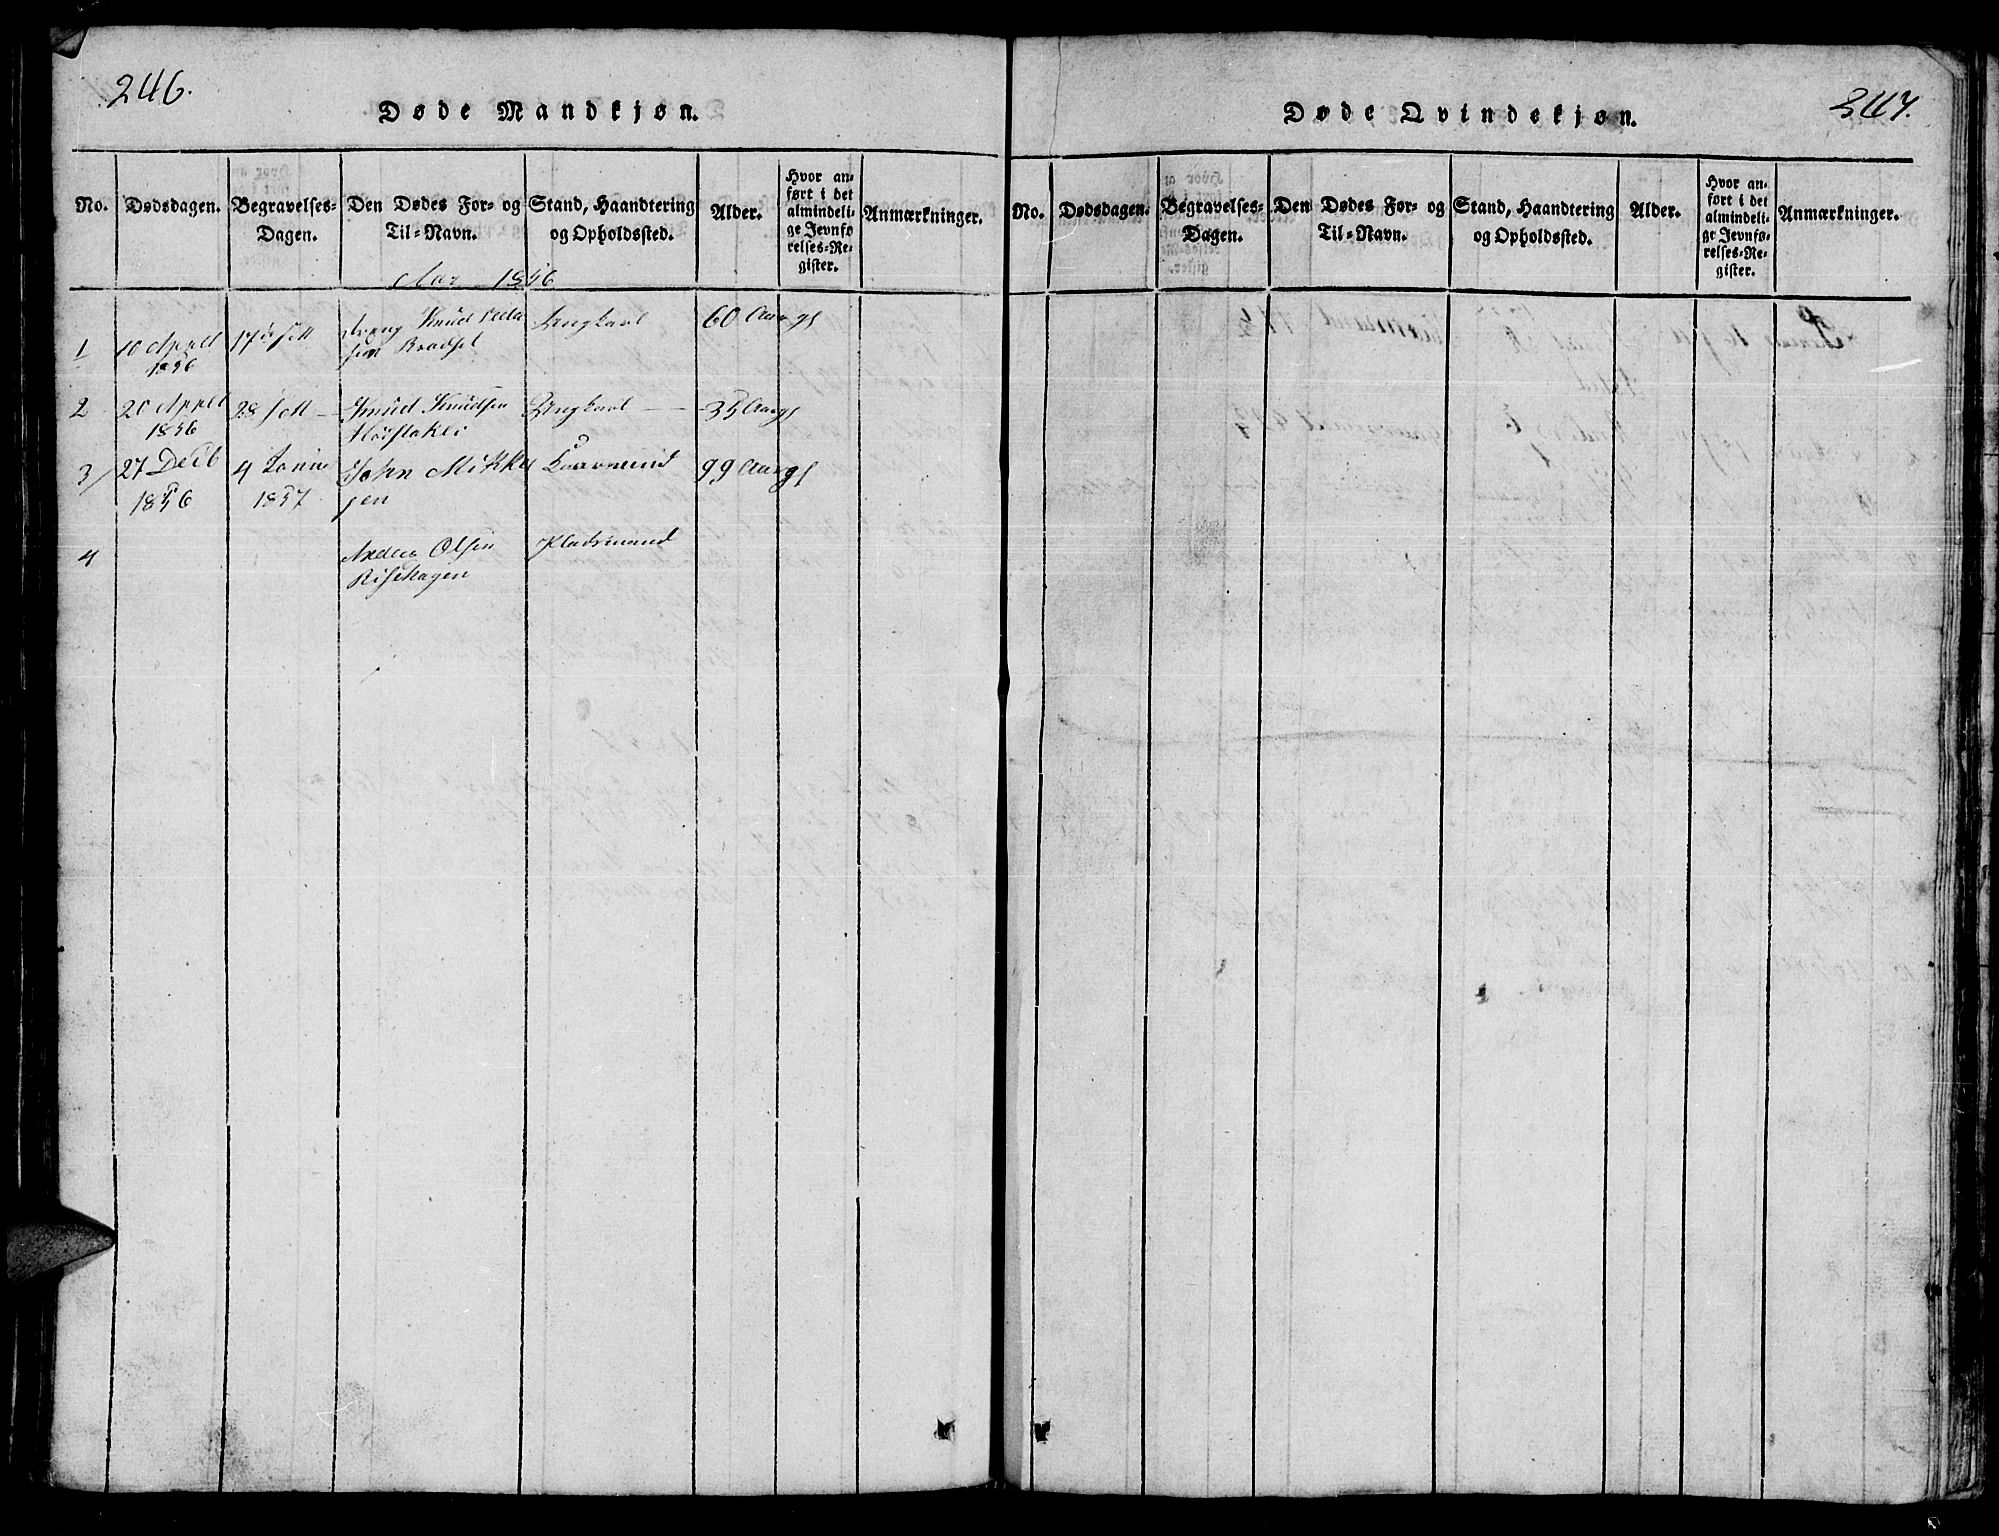 246.
Døde Mandkjøn.
No.
Dødsdagen.
Begravelses-
Dagen.
Den Dødes For- og
Til-Navn.
Stand, Haandtering
og Opholdssted.
Alder.
Hvor an-
ført i det
almindeli-
ge Jevnfø
relses-Re-
gister.
Anmærkninger.
Aar 1856
1
10 Appel
1856
17 de sett
Knud
60 Aargs
2
20 Appel
1856
28 sett
Knud Knudsen
Ungkarl
35 Aargs
3
27 Deсb
1856
4
1857
John Mikkel
sen
99 Aargs
4
Olsen
Risehagen
347.
Døde Qvindekjøn.
No.
Dødsdagen.
Begravelses-
Dagen.
Den Dødes For- og
Til-Navn.
Stand, Haandtering
og Opholdssted.
Alder.
Hvor an-
ført i det
almindeli-
ge Jevnfø-
relses-Re-
gister.
Anmærkninger.